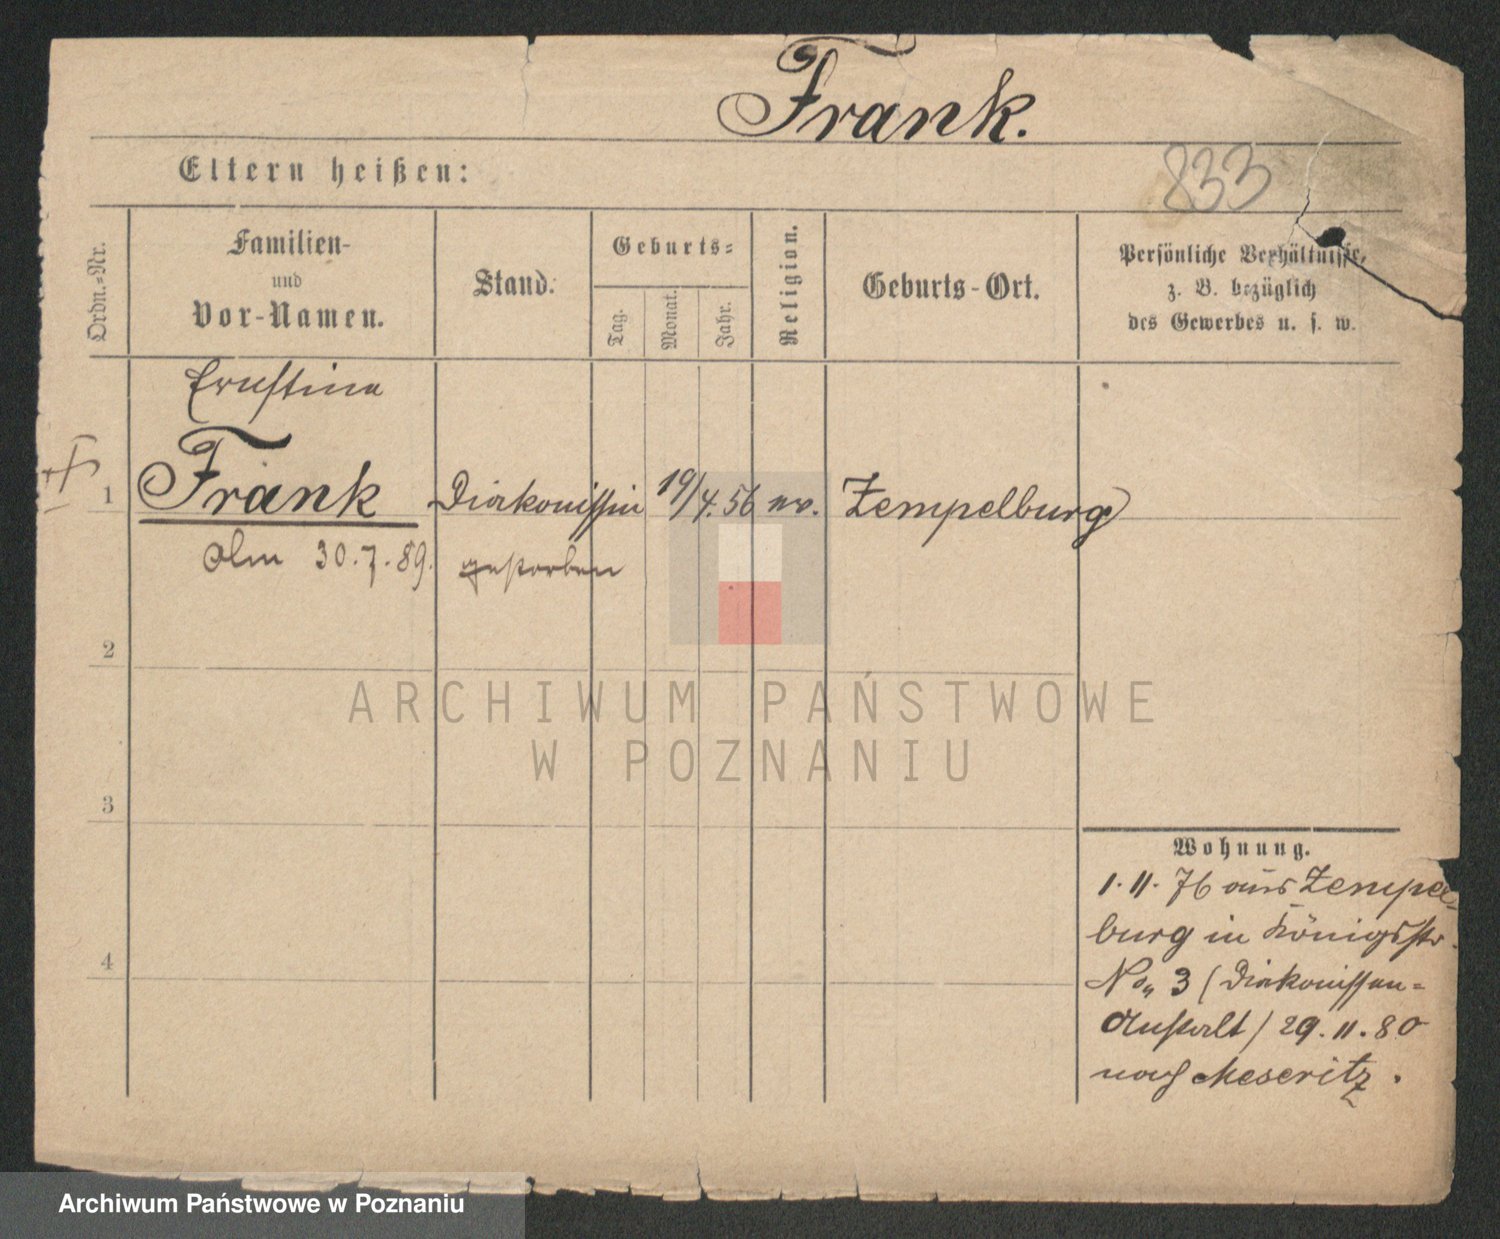 Frank.
833
Eltern heißen:
Ordn.-Nr.
Familien-
und
Vor-Namen.
Stand.
Geburts-
Tag.
Monat.
Jahr.
Religion.
Geburts-Ort.
Persönliche Verhältnisse,
z. B. bezüglich
des Gewerbes u. s. w.
Ernstine
1 Frank Diakonissin 19/4.56 ev. Zempelburg
Am 30.7.89. gestorben
2
3
4
Wohnung.
1.11.76 aus Zempel-
burg in Königsstr.
No 3 (Diakonissen-
Anstalt) 29.11.80
nach Meseritz.
ARCHIWUM PAŃSTWOWE
W POZNANIU
Archiwum Państwowe w Poznaniu